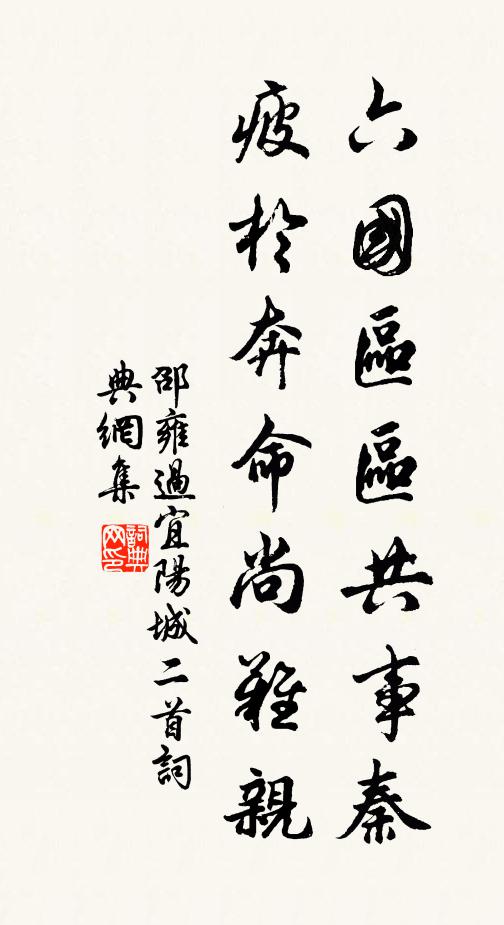 六國區區共事秦
疲於奔命尚難親
邵雍過宜陽城二首詞
典網集
詞典網印